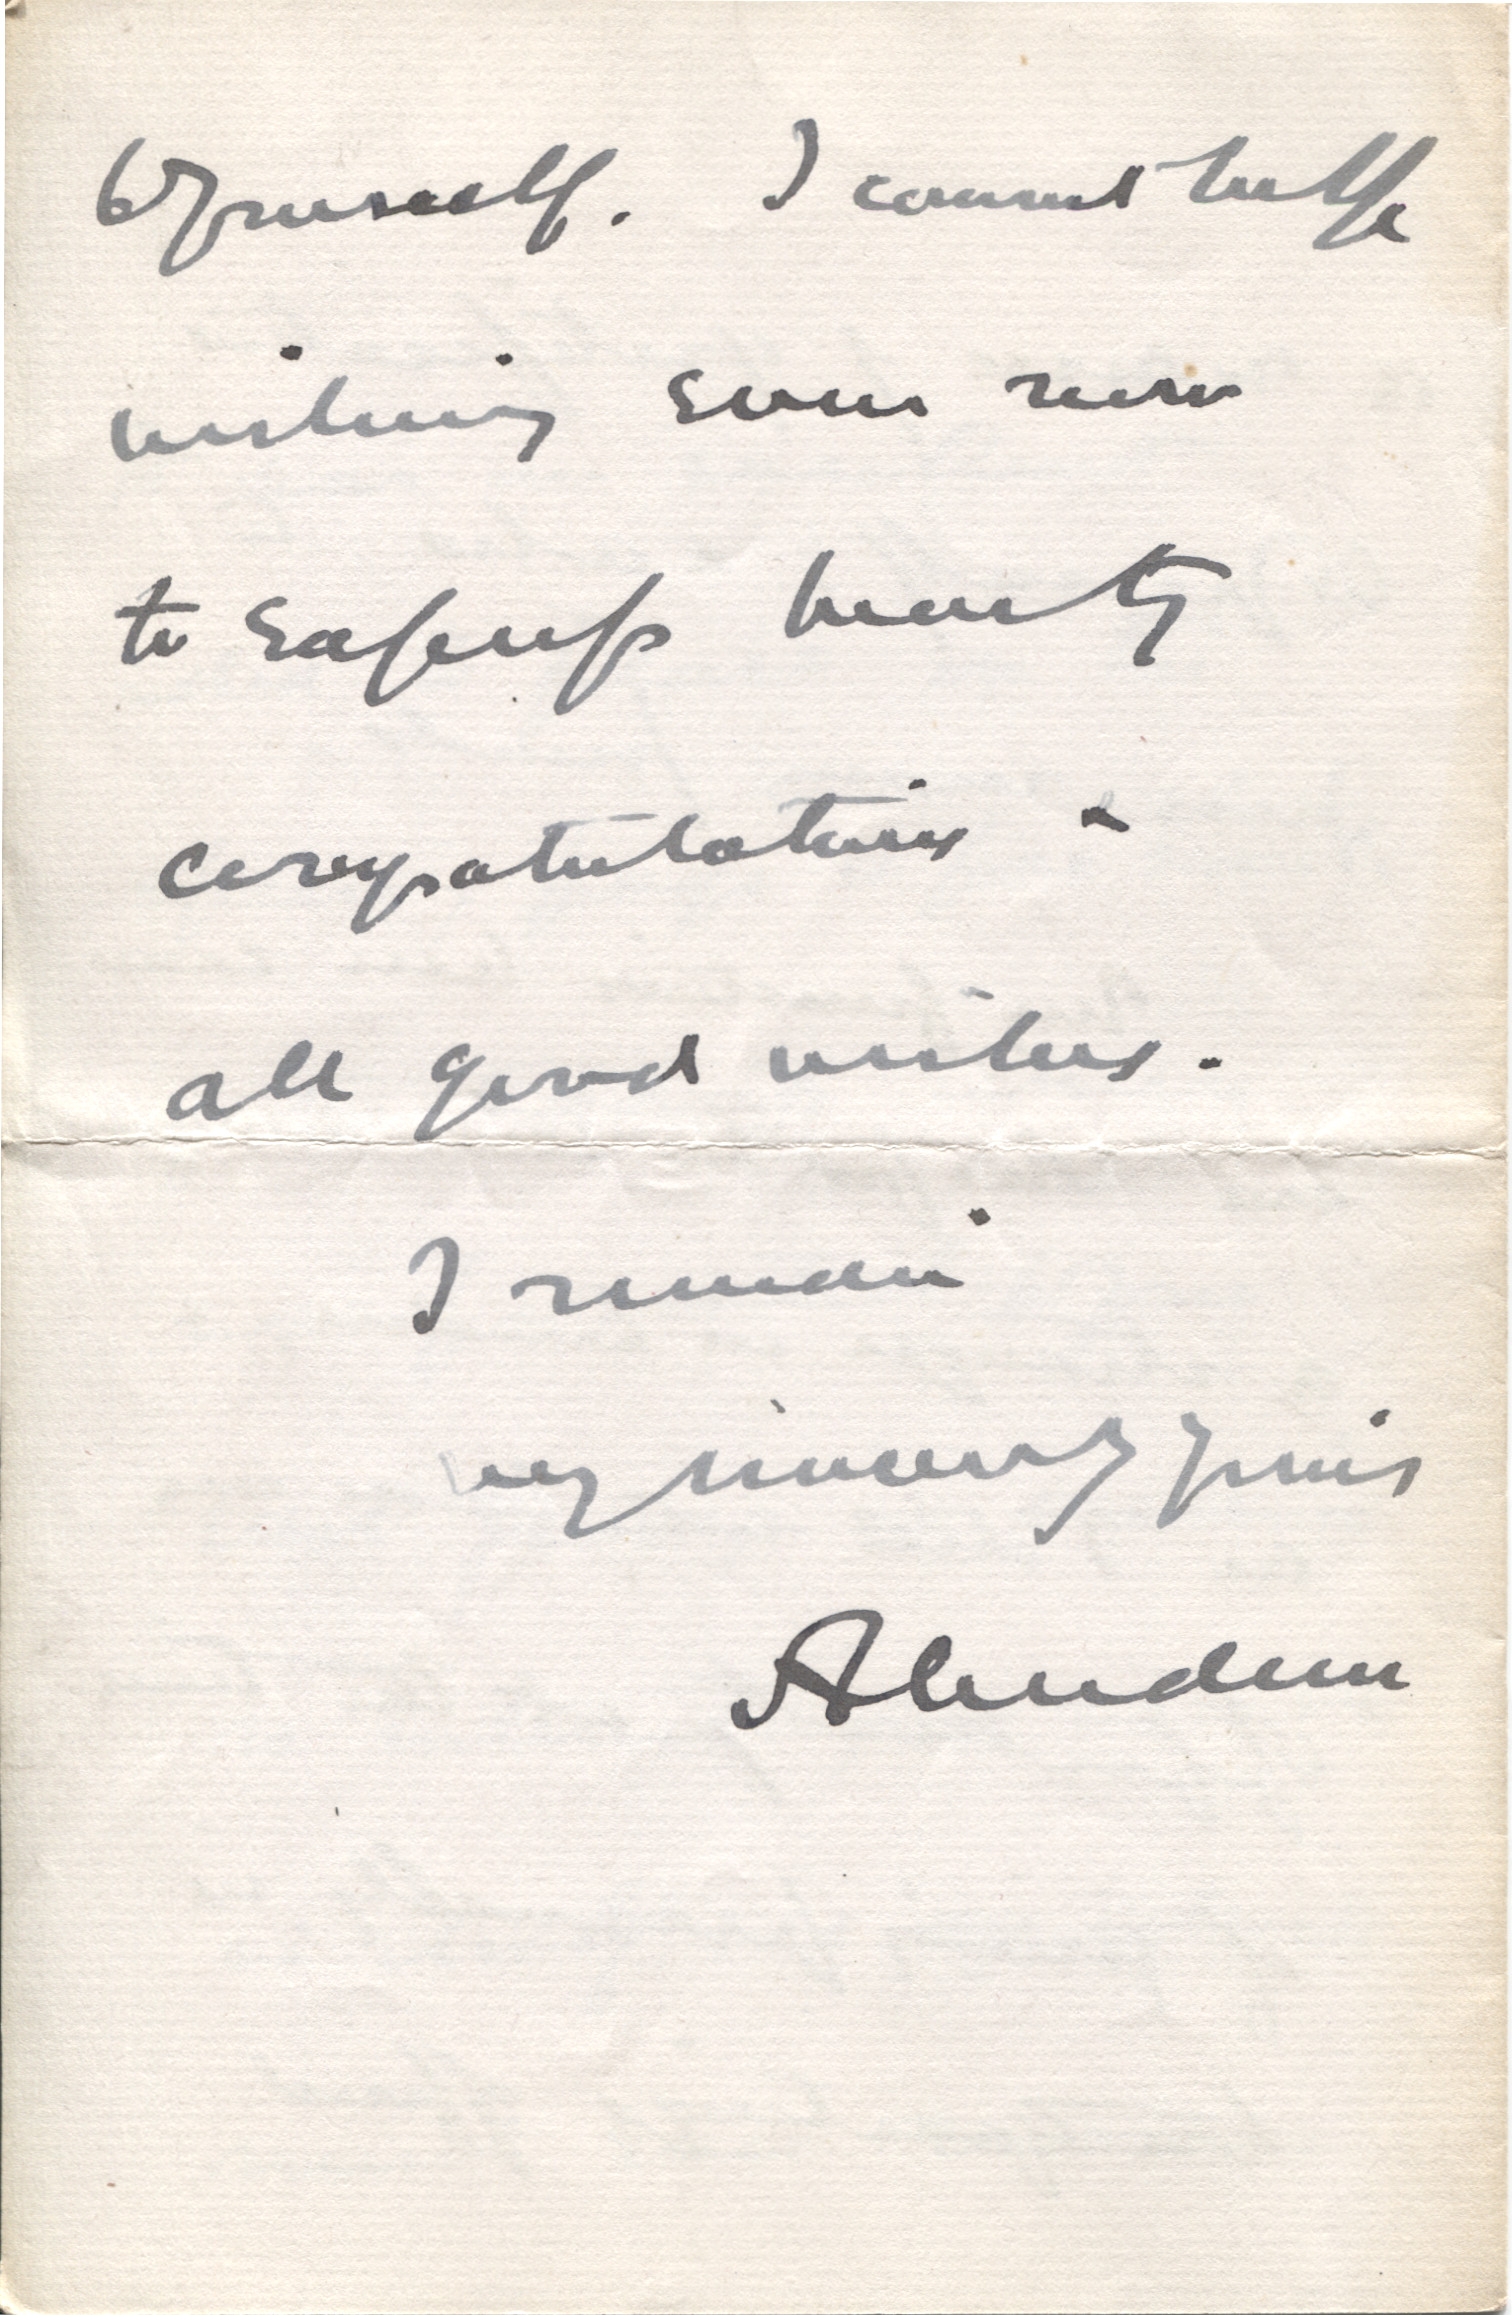 to yourself. I cannot help
wishing even now
to express hearty
congratulations &
all good wishes.
I remain
very sincerely yours
Aberdeen